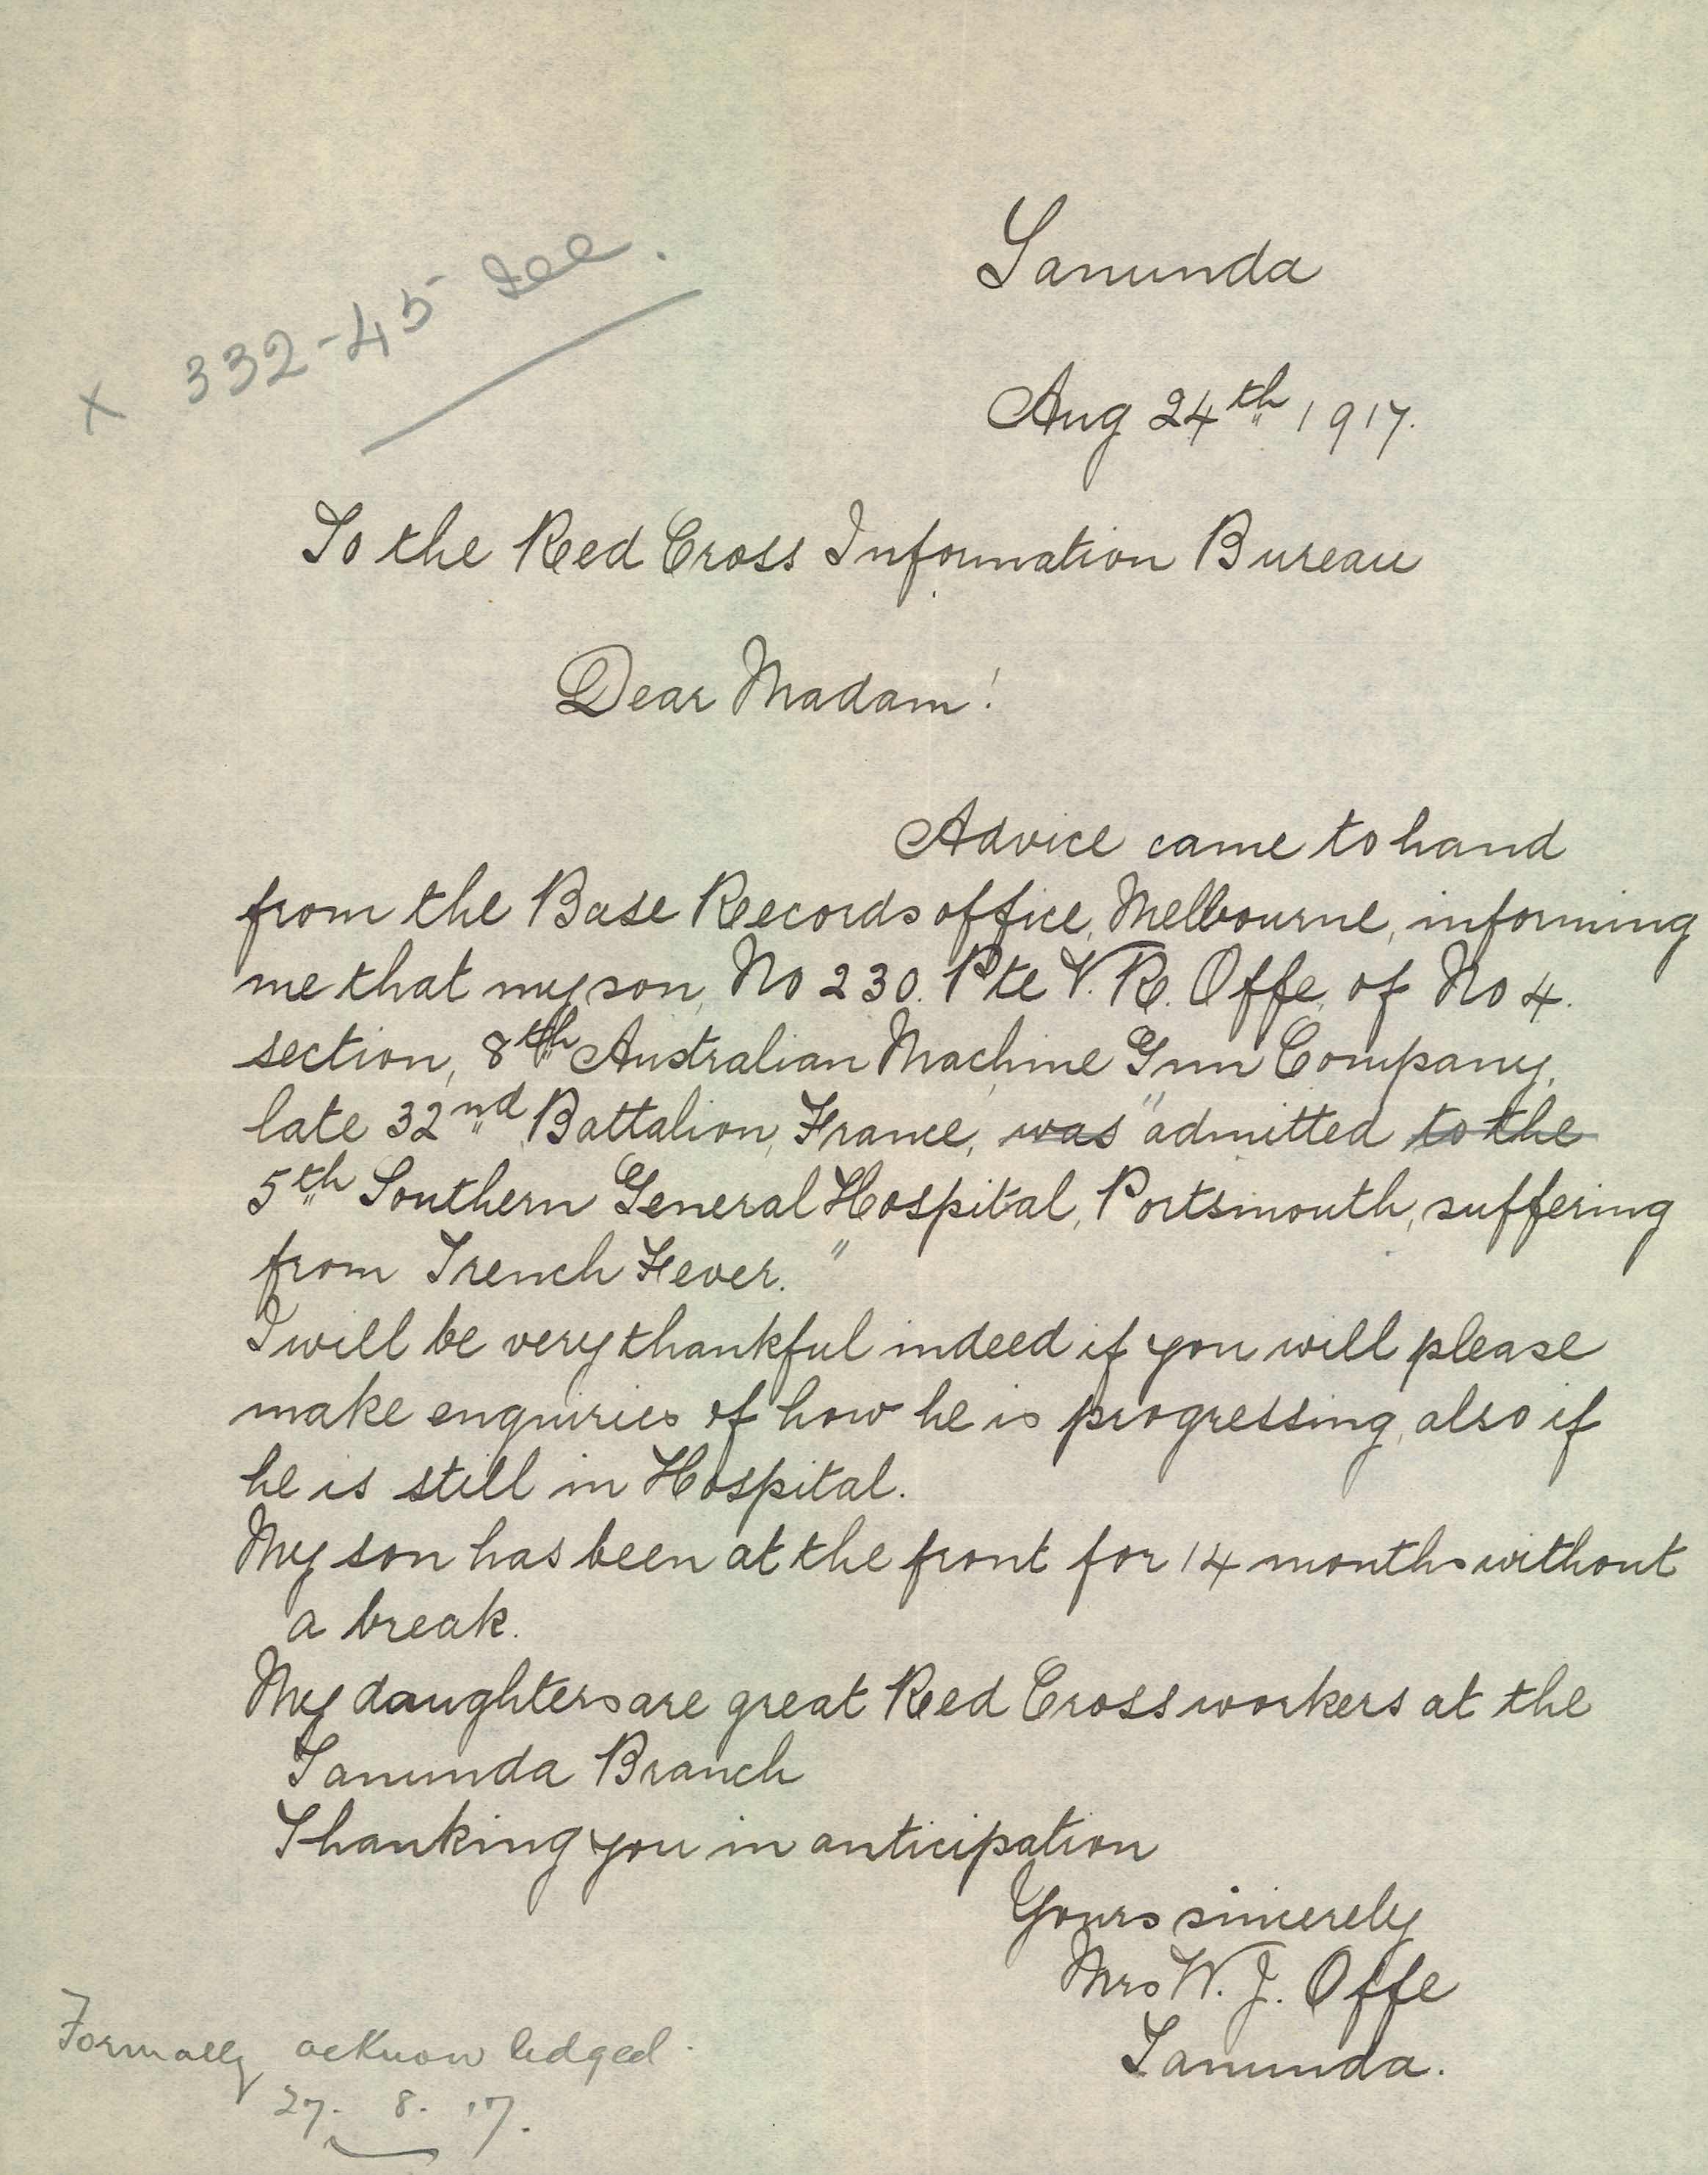 x 332-45
Tanunda
Aug 24th 1917.
To the Red Cross Information Bureau
Dear Madam!
Advice came to hand
from the Base Records office, Melbourne, informing
me that my son, No 230. Pte V. R. Offe, of No 4.
section, 8th Australian Machine Gun Company,
late 32nd Battalion, France, was "admitted to the
5th Southern General Hospital, Portsmouth, suffering
from Trench Fever."
I will be very thankful indeed if you will please
make enquiries of how he is progressing, also if
he is still in Hospital.
My son has been at the front for 14 months without
a break.
My daughters are great Red Cross workers at the
Tanunda Branch
Thanking you in anticipation
Yours sincerely
Mrs W. J. Offe
Tanunda.
Formally acknowledged.
27. 8. 17.